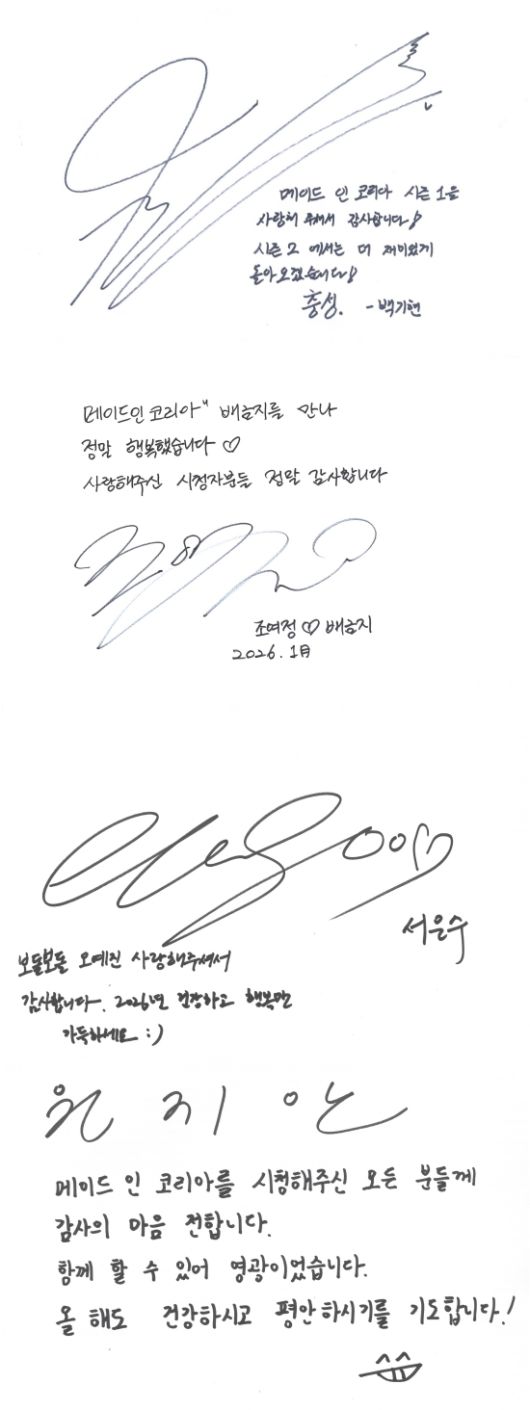 메이드 인 코리아 시즌 1을
사랑해 주셔서 감사합니다♪
시즌 2 에서는 더 재미있게
돌아오겠습니다♪
충성. - 백기현
메이드인 코리아" 배금지를 만나
정말 행복했습니다 ♡
사랑해주신 시청자분들 정말 감사합니다
조여정 ♡ 배금지
2026. 1月
서은수
보들보들 오예진 사랑해주셔서
감사합니다. 2026년 건강하고 행복만
가득하세요 :)
원 지 안
메이드 인 코리아를 시청해주신 모든 분들께
감사의 마음 전합니다.
함께 할 수 있어 영광이었습니다.
올 해도 건강하시고 평안하시기를 기도합니다!